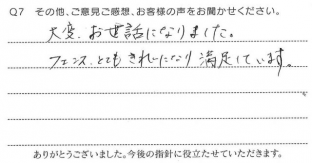 Q7 その他、ご意見ご感想、お客様の声をお聞かせください。
大変、お世話になりました。
フェンス、とてもきれいになり満足しています。
ありがとうございました。今後の指針に役立たせていただきます。